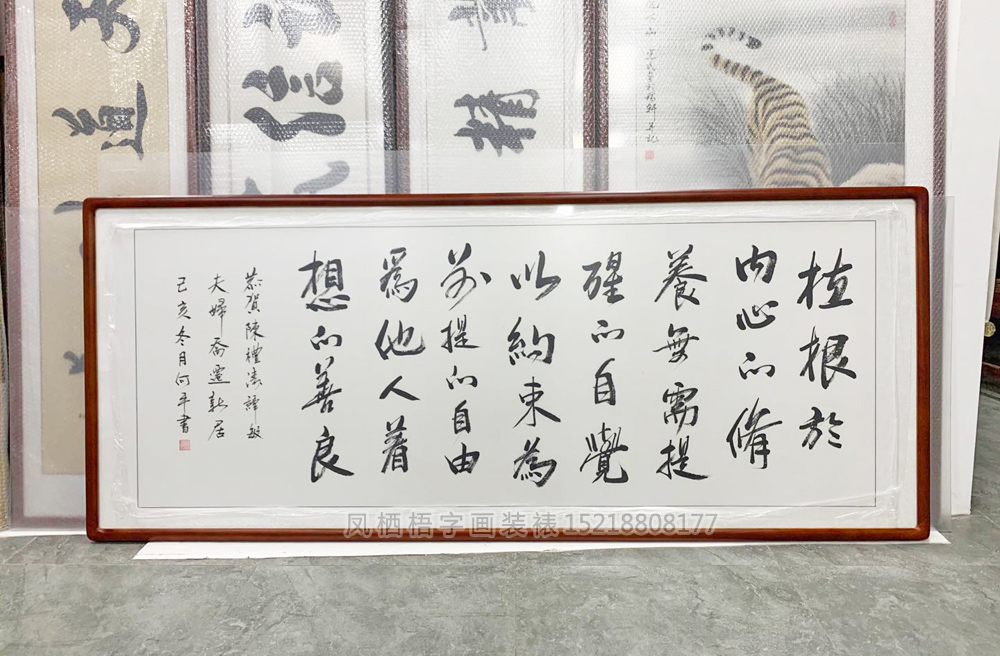 植根於
内心的脩
養無需提
醒的自覺
以約束為
前提的自由
爲他人着
想的善良
恭賀陳禮濤譚敏
夫婦喬遷新居
己亥冬月何平書
凤栖梧字画装裱15218808177
道
信
精